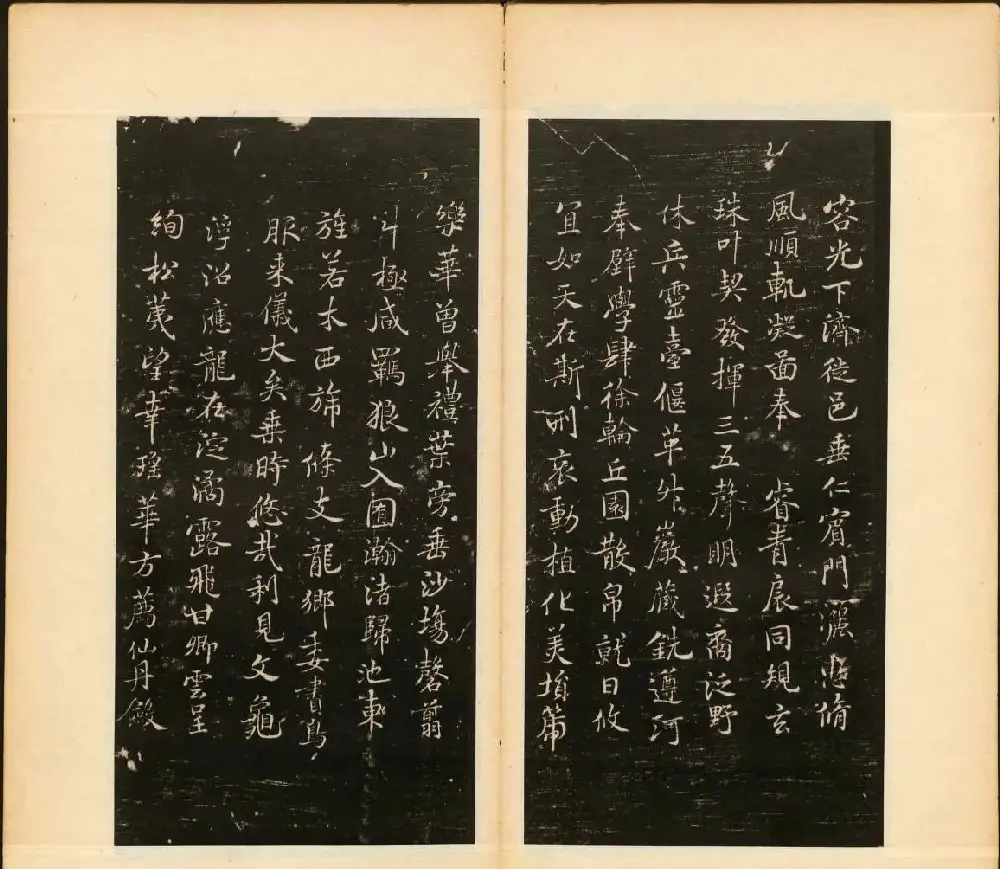 容光下濟從邑垂仁賓門灑悲脩
風順軌凝面奉 睿青扆同規玄
珠叶契發揮三五聲明遐裔泛野
休兵靈臺偃革升巖藏銑遵河
奉璧學肆徐輪丘園散帛就日攸
宜如天在斯刑哀動植化美塤篇
樂華曾舉禮葉旁垂沙塲罄翦
斗極咸羈狼山入囿瀚渚歸池東
旌若木西旆條支龍鄉委書鳥
服来儀大矣乗時悠哉利見文龜
浮沼應龍在淀潏露飛甘卿雲呈
絢松荑望幸瑤華方薦仙丹斂